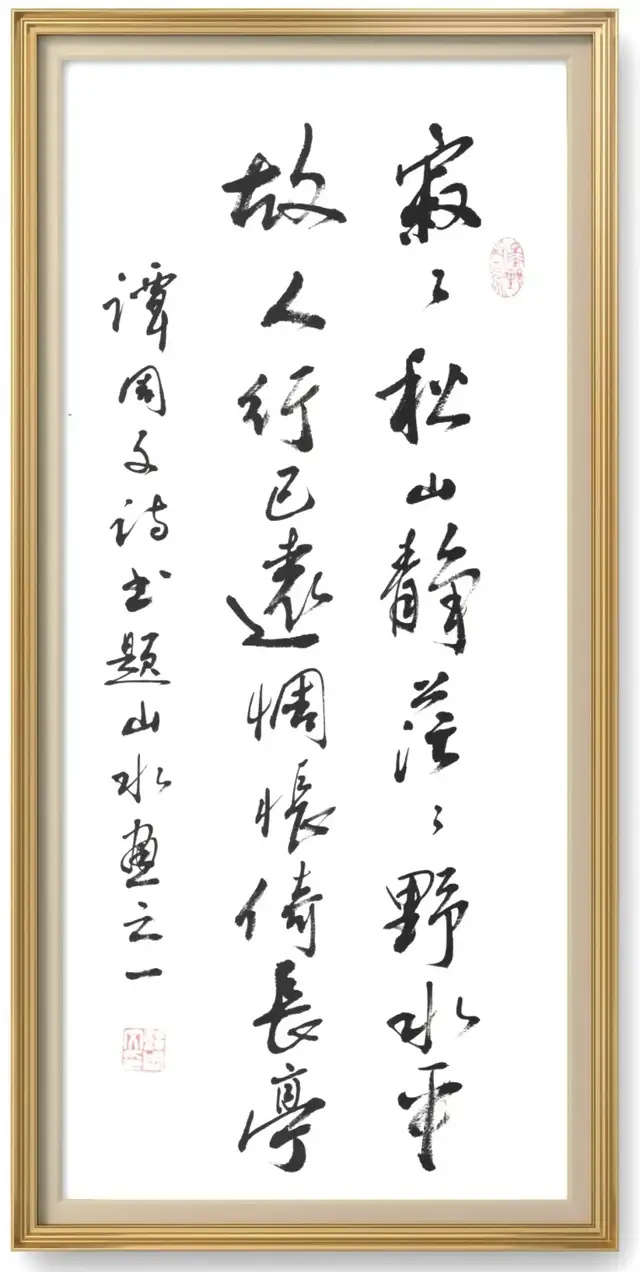 寂〻秋山靜茫〻野水平
故人行已遠惆悵倚長亭
譚周文詩書題山水畫之一